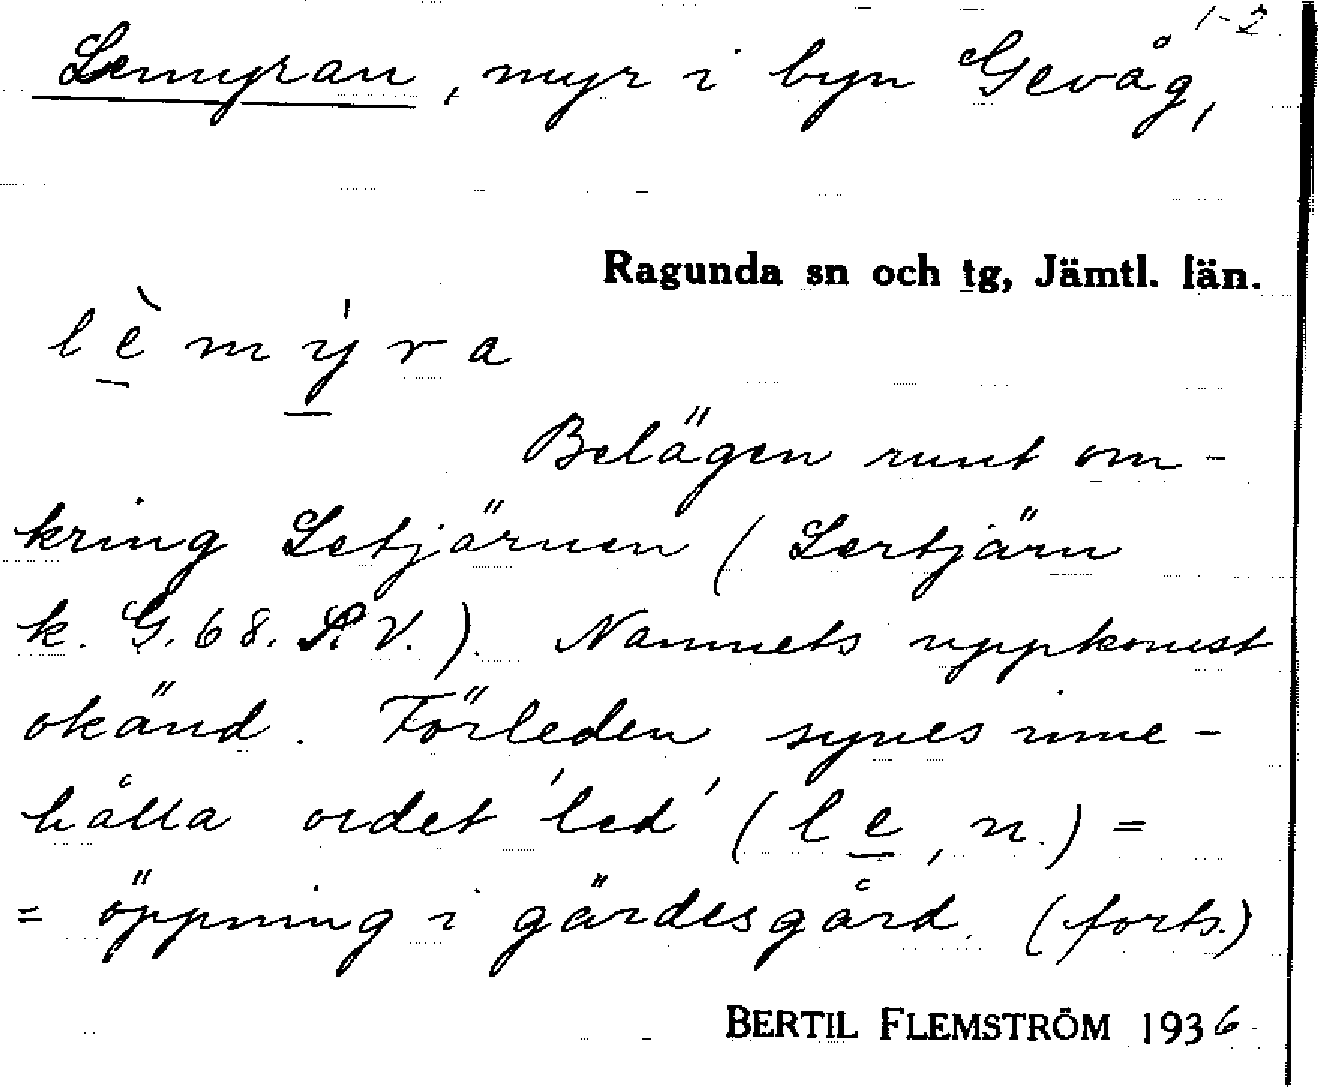 1-2.
Lemyran, myr i byn Gevåg,
Ragunda sn och tg, Jämtl. län.
lèmýra
Belägen runt om-
kring Letjärnen (Lertjärn
k. G. 68. R.V.). Namnets uppkomst
okänd. Förleden synes inne-
hålla ordet 'led' (le, n.) =
= öppning i gärdesgård. (forts.)
BERTIL FLEMSTRÖM 1936